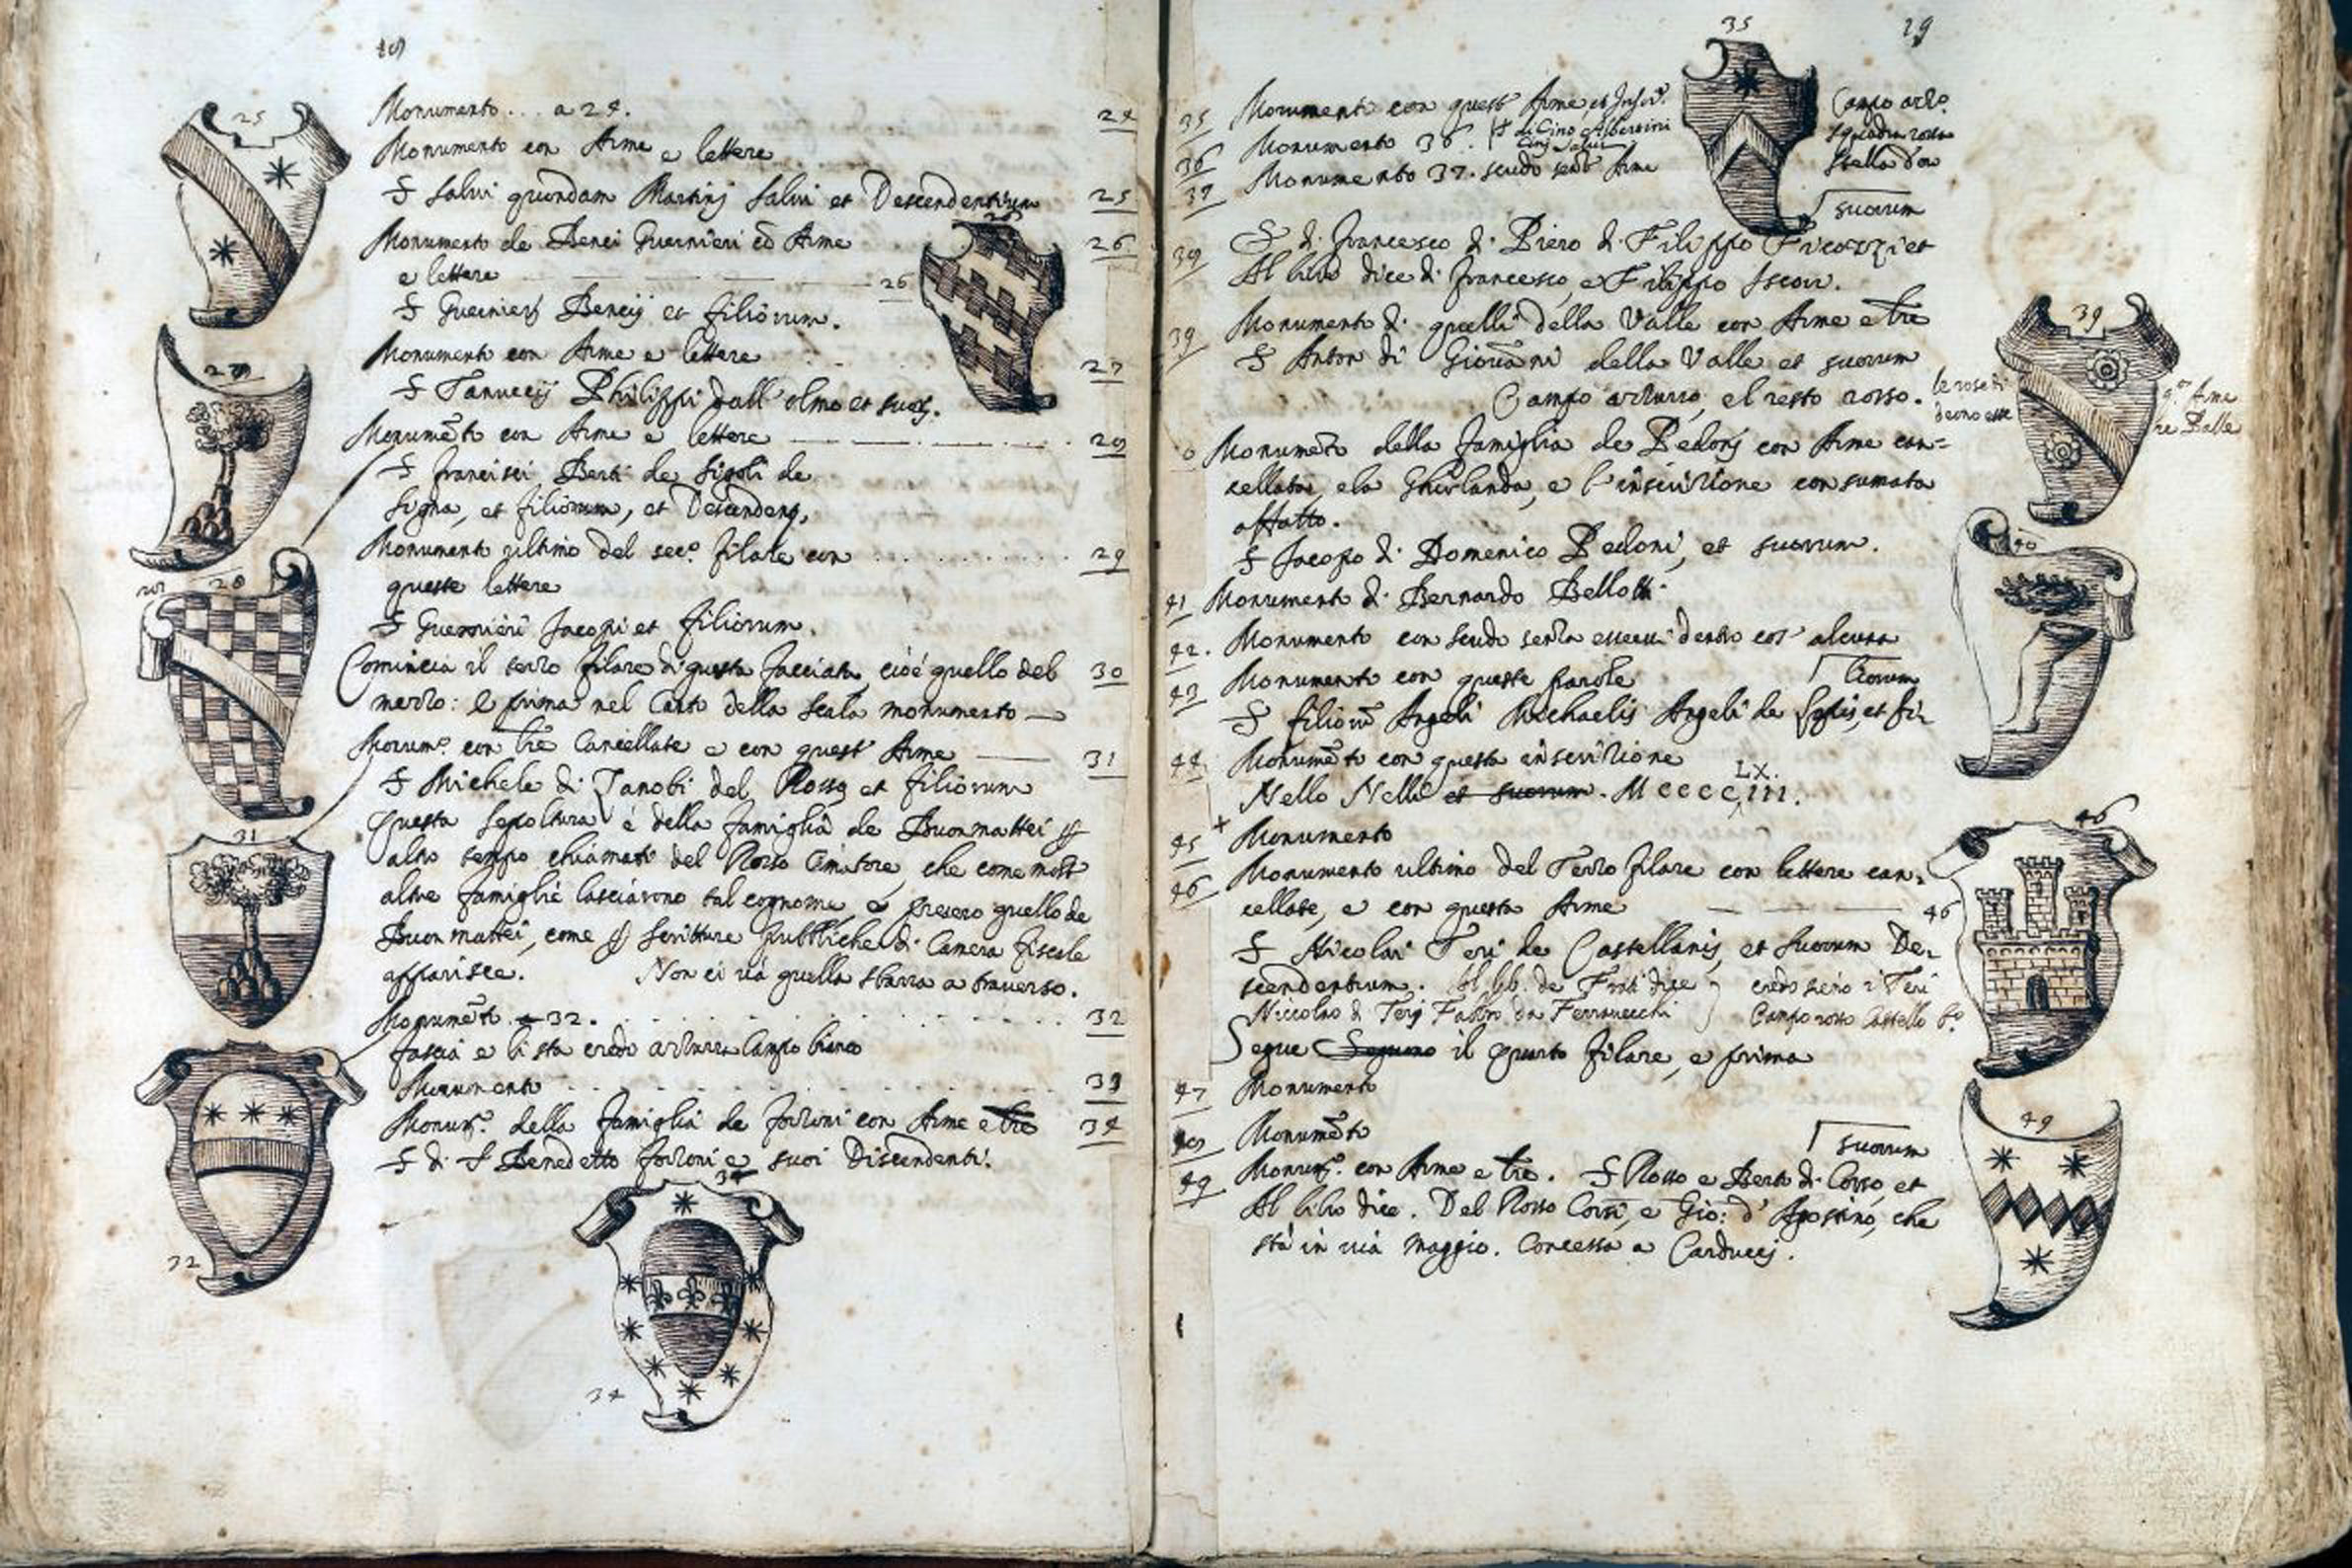 Monumento... a 24. 24
Monumento con Arme e lettere
S Salvi quondam Martinj Salvi et Descendentium 25
Monumento de Benci Guernieri cō Arme 26
e lettere 26
S Guernierj Bencij et filiorum.
Monumento con Arme e lettere 27
S Tanuccij Philippi dall' olmo et suor.
Monumēto con Arme e lettere 28
S Francisci Berti de Sigoli de
Signa, et filiorum, et Descendenz,
Monumento ultimo del sec.º filare con 29
queste lettere
S Guernieri Jacopi et filiorum.
Comincia il terzo filare di questa facciata, cioè quello del 30
mezzo: e prima nel Canto della Scala monumento
Monum.º con tre Cancellate e con quest' Arme 31
S Michele di Zanobi del Rosso et filiorum
Questa Sepoltura è della famiglia de Buonmattei
altro tempo chiamati del Rosso Cimatore, che come molt
altre famiglie lasciarono tal cognome, e presero quello de
Buonmattei, come Scritture pubbliche di Camera fiscale
apparisce. Non ci và quella sbarra a traverso.
Monumēto 32. 32
fascia e lista credo azzurra Campo bianco
Monumento 33
Monum.º della famiglia de forzoni con Arme e tre 34
S di S Benedetto forzoni e suoi Discendenti.
25
26
27
28
31
32
34
34
35
29
35 Monumento con quest' Arme, et Inscr.
S di Cino Albertini
36 Monumento 36.
37 Monumento 37. scudo senz' Arme
Campo azzo.
squadra rossa
stella d'oro
suorum
S di Francesco di Piero di Filippo et
Al libro dice di Francesco, e Filippo
39 Monumento di quelli della Valle con Arme e tre
S Anton di Giovāni della Valle et suorum
Campo azzurro, el resto rosso.
le rose
deono esse
Arme
re Palle
39
Monumēto della famiglia de Pedonj con Arme can=
cellata, e la Ghirlanda, e l'inscrizione consumata
affatto.
S Jacopo di Domenico Pedoni, et suorum.
40
41 Monumento di Bernardo Bellotti
42. Monumento con scudo senza esservi dentro cos' alcuna
43 Monumento con queste parole
S filiorū Angeli Michaelis Angeli de et fi-
liorum
44 Monumēto con questa inscrizione
LX.
Nello Nelli et suorum. MCCCCIII.
45 + Monumento
46 Monumento ultimo del Terzo filare con lettere can-
cellate, e con questa Arme 46
46
S Nicolai Teri de Castellanis, et suorum De-
scendentium. Al lib. de Frati dice
Niccolao di Terj Fabbro da Ferravecchi
credo sieno i Teri
Campo rosso Castello b.º
Segue Seguono il quarto filare, e prima
47 Monumento
48 Monumēto
suorum
49 Monum.º con Arme e tre. S Rosso e Berto di Corso, et
Al libro dice. Del Rosso Corsi, e Gio: d' Agostino, che
stà in via Maggio. Concessa a Carduccj.
49